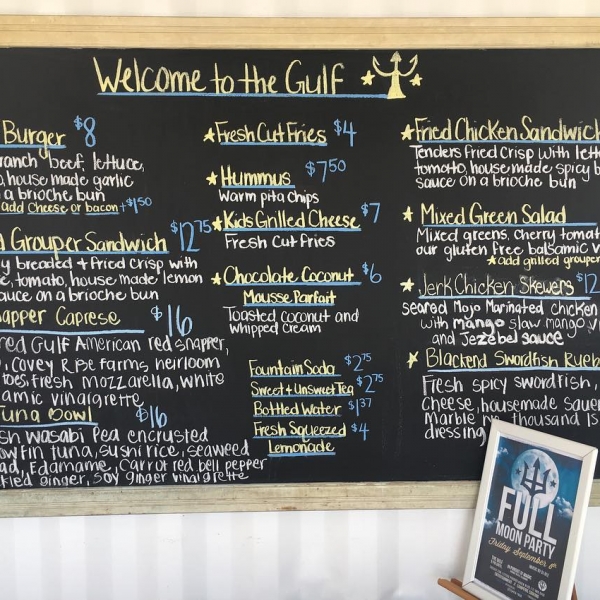 Welcome to the Gulf
Burger $8
ranch beef, lettuce,
house made garlic
a brioche bun
add Cheese or bacon +$1.50
Grouper Sandwich $12.75
breaded + fried crisp with
tomato, house made lemon
sauce on a brioche bun
Caprese $16
Gulf American red snapper,
covey Rise farms, heirloom
fresh mozzarella, white
vinaigrette
Tuna Bowl $16
wasabi Pea encrusted
tuna, sushi rice, seaweed
Edamame, carrot red bell pepper
ginger, soy ginger vinaigrette
Fresh Cut Fries $4
Hummus $7.50
Warm pita chips
Kids Grilled Cheese $7
Fresh cut fries
Chocolate Coconut $6
Mousse Parfait
Toasted coconut and
whipped cream
Fountain Soda $2.75
Sweet + Unsweet Tea $2.75
Bottled Water $1.37
Fresh Squeezed $4
Lemonade
Fried Chicken Sandwich
Tenders fried crisp with
tomato, house made spicy
sauce on a brioche bun
Mixed Green Salad
Mixed greens, cherry
our gluten free balsamic
add grilled grouper
Jerk Chicken Skewers $12
seared Mojo Marinated chicken
with mango slaw mango
and Jezebel sauce
Blackend Swordfish
Fresh spicy swordfish,
cheese, housemade
Marble thousand
dressing
FULL
MOON PARTY
Friday September 8th